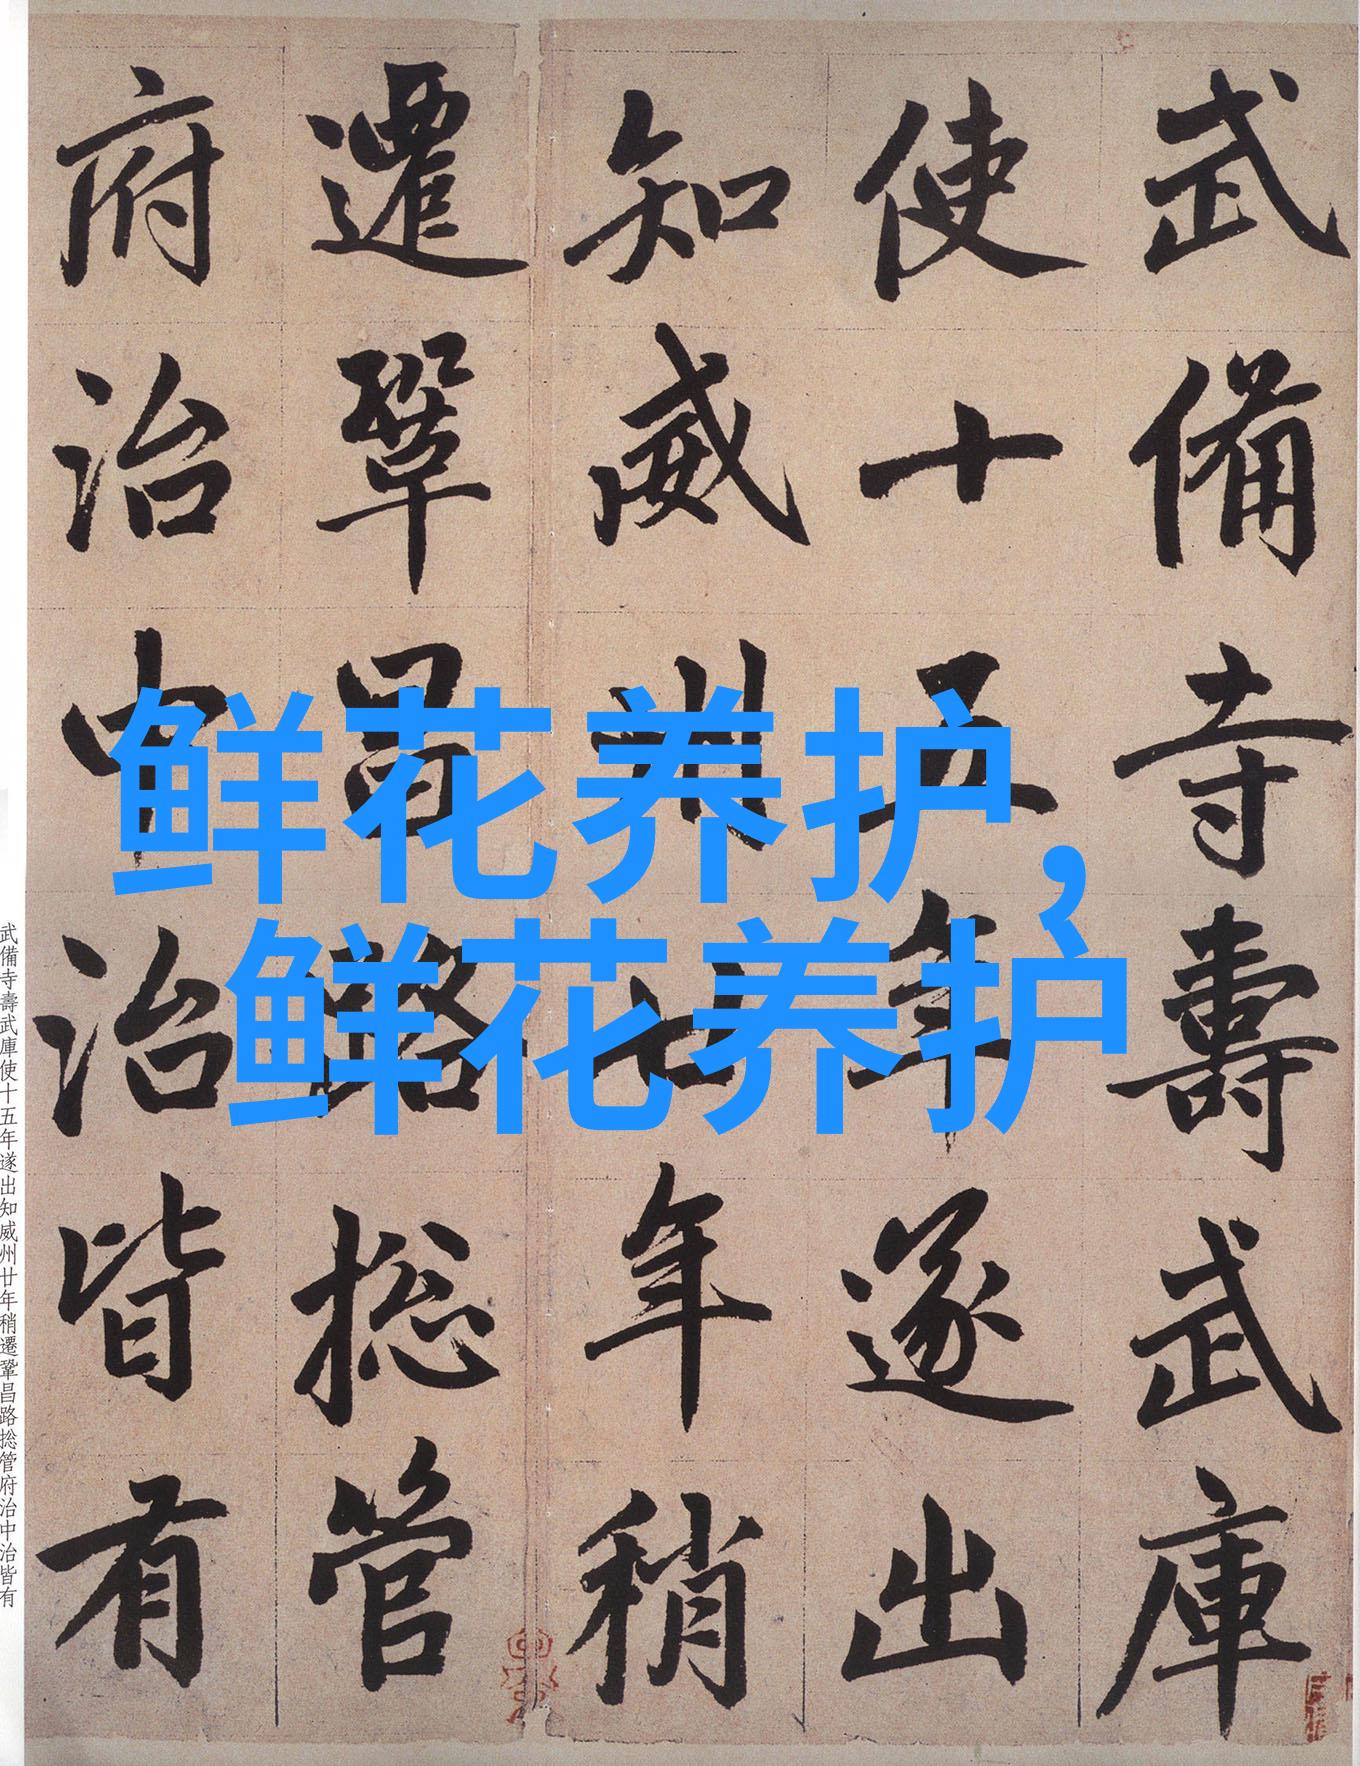 武備寺壽武庫
使十五年遂出
知威州廿年稍
遷鞏昌路捴管
府治中治皆有
鲜花养护，
鲜花养护
武備寺壽武庫使十五年遂出知威州廿年稍遷鞏昌路捴管府治中治皆有